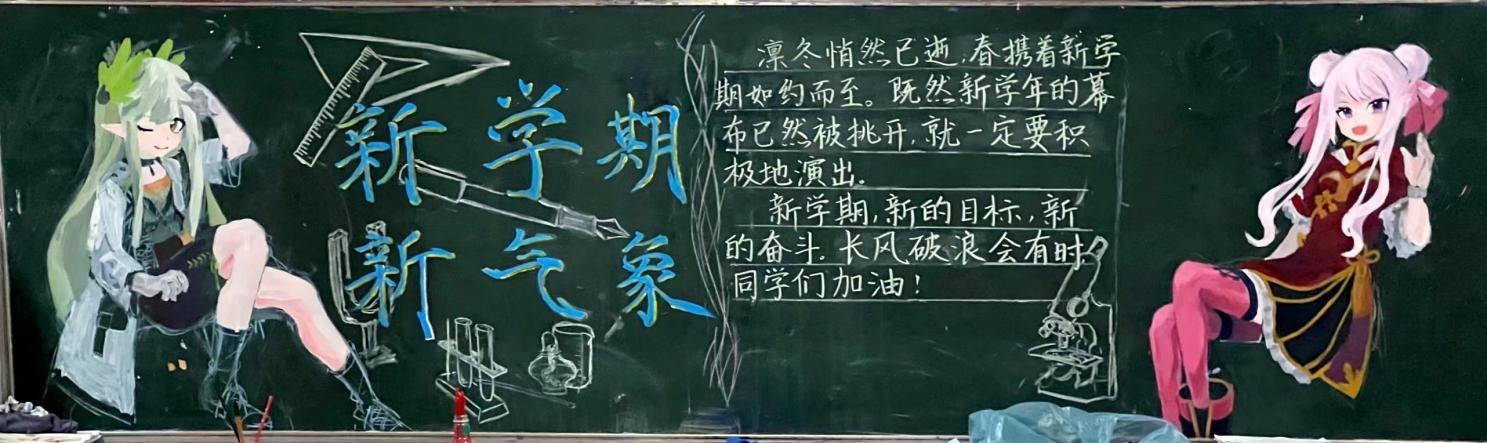 新学期
新气象
凛冬悄然已逝,春携着新学
期如约而至。既然新学年的幕
布已然被挑开,就一定要积
极地演出。
新学期,新的目标,新
的奋斗.长风破浪会有时
同学们加油!